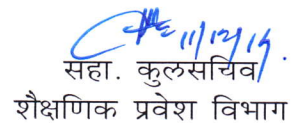 11/12/19.
सहा. कुलसचिव
शैक्षणिक प्रवेश विभाग